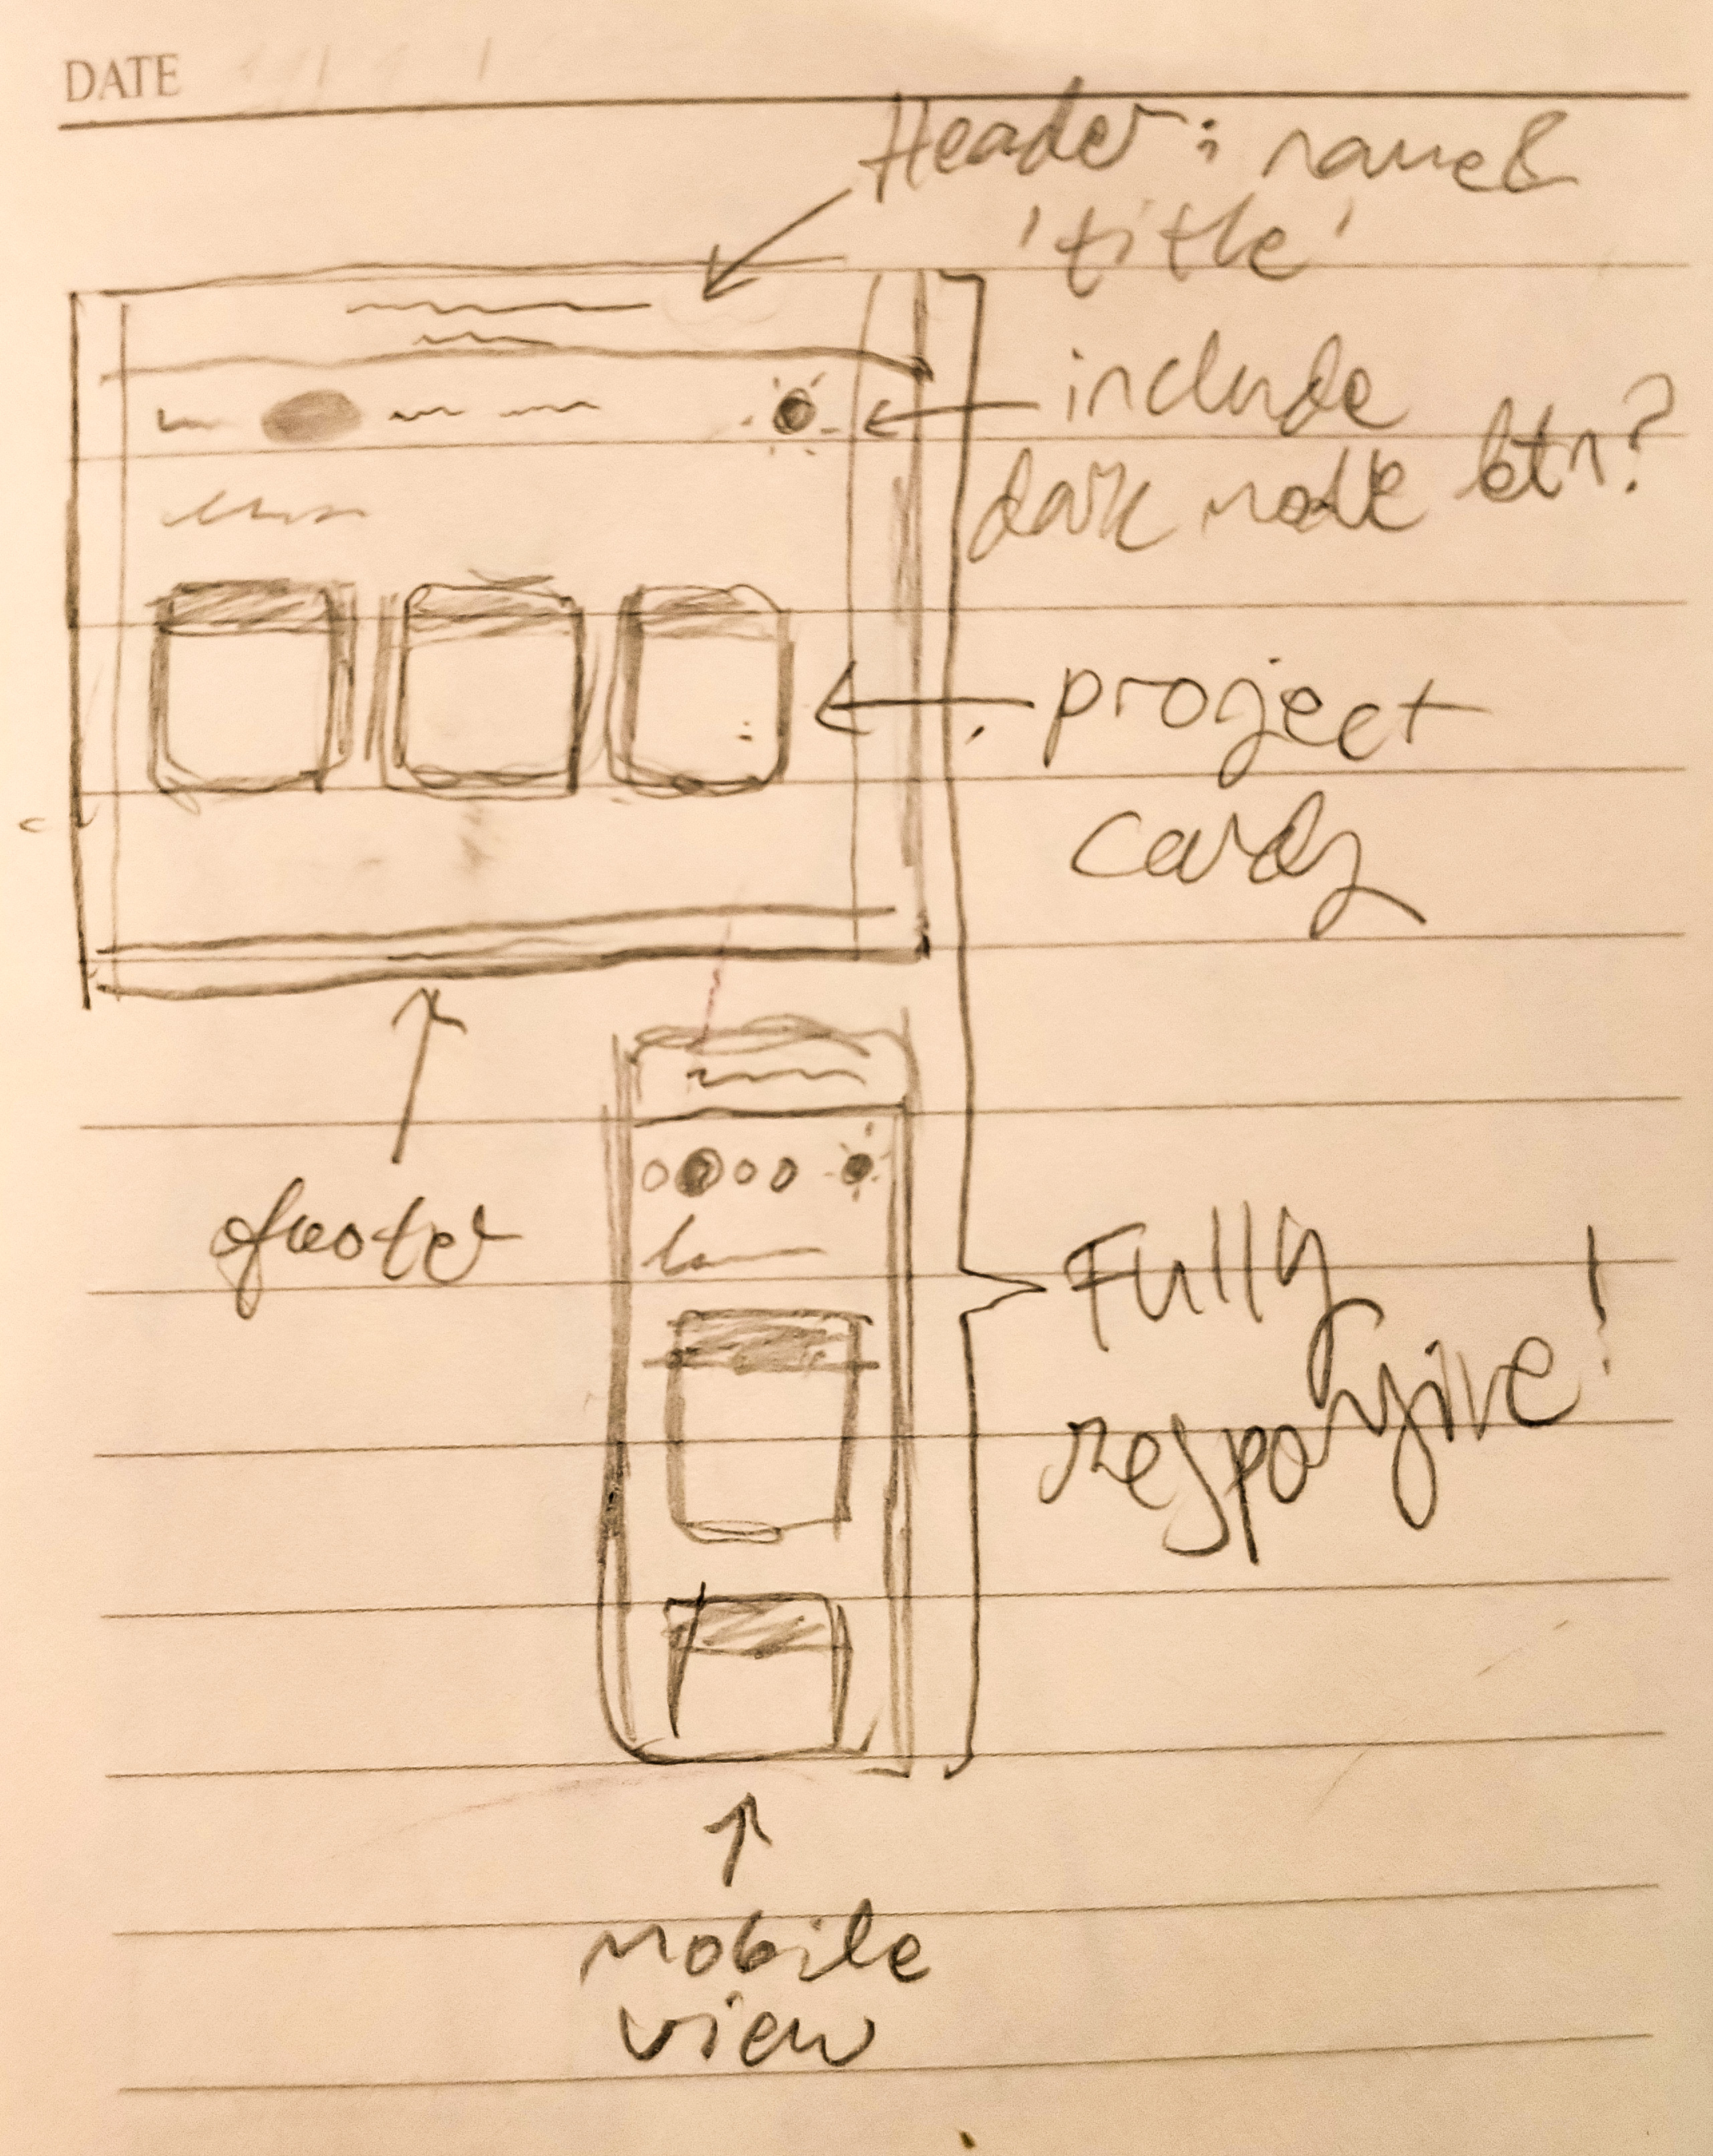 DATE
Header: name &
'title'
include
dark mode btn?
project
cards
footer
Fully
responsive!
mobile
view